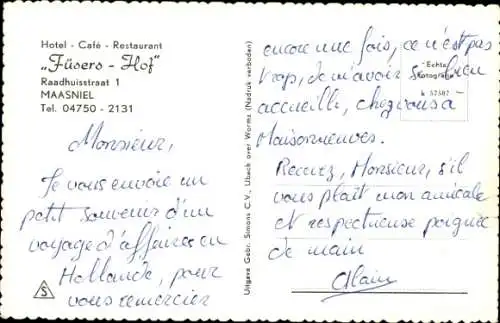 Hotel - Café - Restaurant
„Füsers - Hof"
Raadhuisstraat 1
MAASNIEL
Tel. 04750 - 2131
Monsieur,
Je vous envoie un
petit souvenir d'un
voyage d'affaires en
Hollande, pour
vous remercier
S
Uitgave Gebr. Simons C.V., Ubach over Worms (Nadruk verboden)
encore une fois, ce n'est pas
trop, de m'avoir si bien
accueilli, chez vous à
Maisonneuves.
Recevez, Monsieur, s'il
vous plaît mon amicale
et respectueuse poignée
de main
Alain
Echte
Fotografie
k 57507